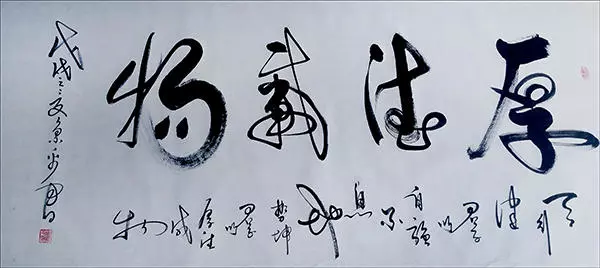 厚德載物
天行健君子以自強不息地勢坤君子以厚德載物
戊戌之夏